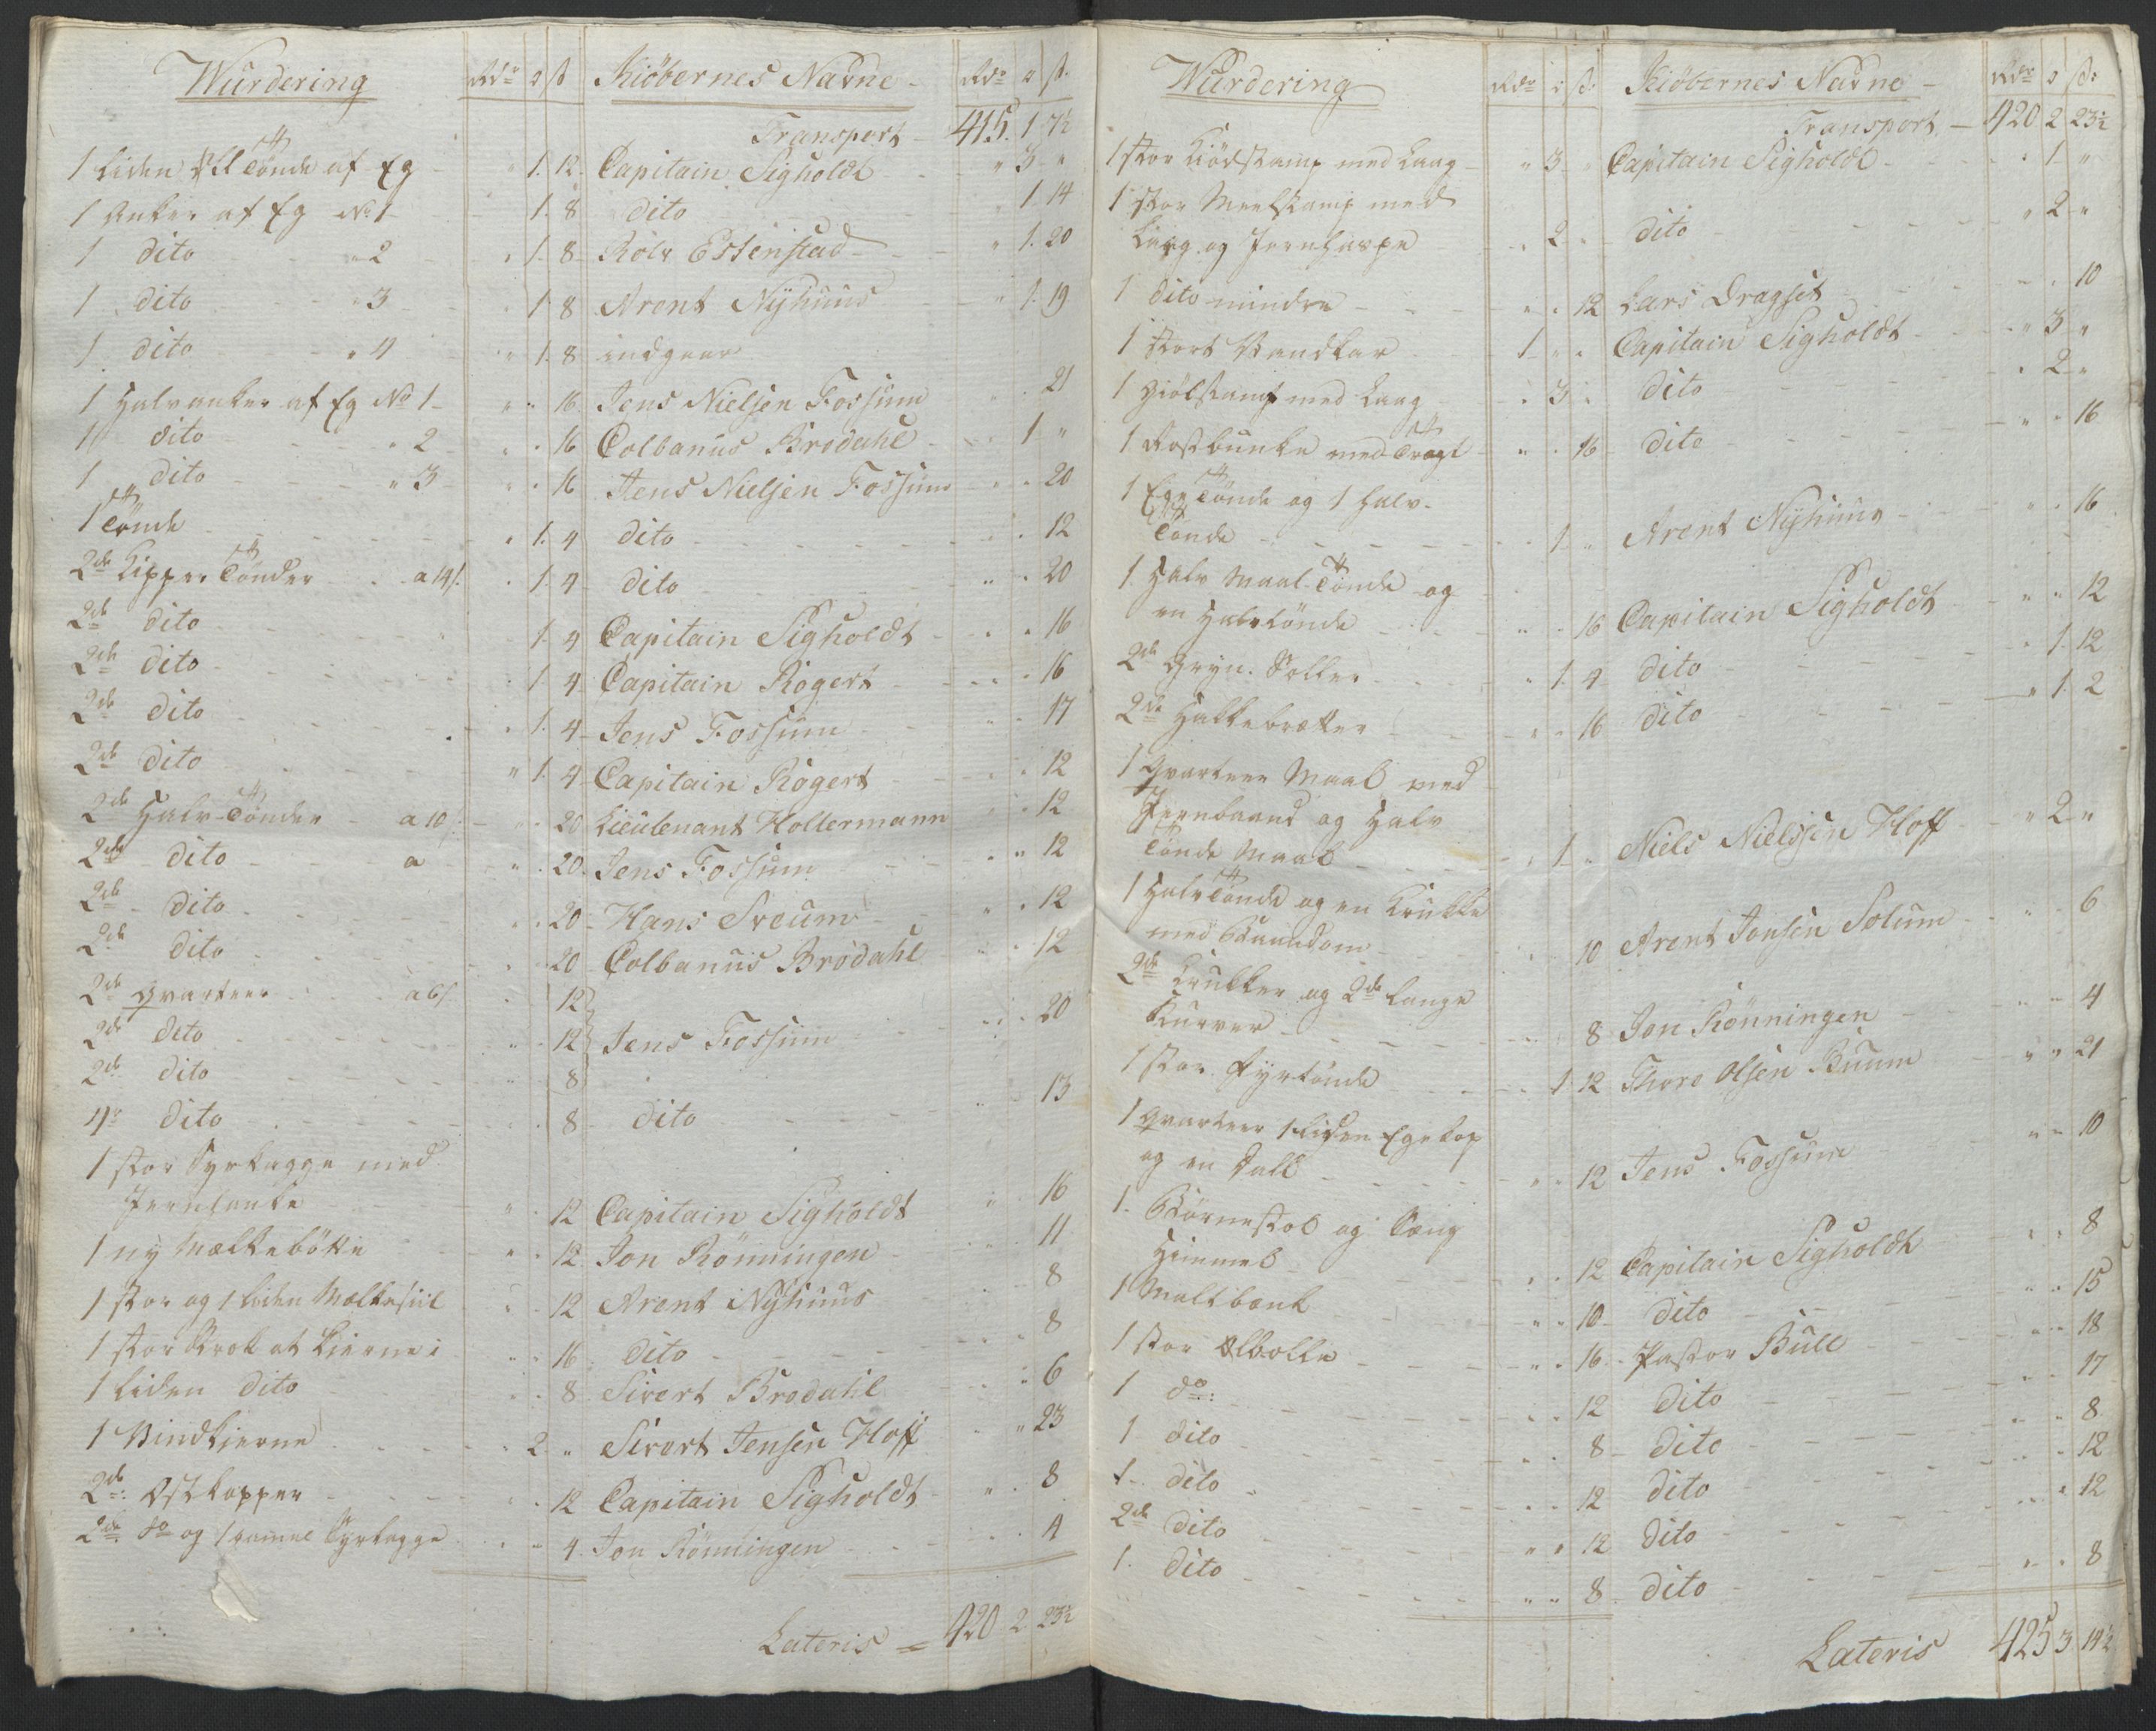 Wurdering Rdr o ß Kiöbernes Navne Rdr o ß.
Transport 415. 1 7½
1 liden Öl Tönde af Eg " 1. 12. Capitain Sigholdt " 3 "
1 Anker af Eg No 1 1. 8 dito 1 14
1 dito " 2 " 1. 8 Rolv Estenstad " 1. 20
1 dito " 3 1 8 Arent Nÿhuus " 1. 19
1 dito " 4 " 1. 8 indgaar
1 Halvanker af Eg No 1 " " 16 Jens Nielsen Fossum " 21
1 dito " 2 " " 16 Colbanus Brödahl 1 "
1 dito " 3 " " 16 Jens Nielsen Fossum " " 20
1 Tönde " 1. 4 dito " 12
2de Tönder a 14 ß. 1. 4 dito " " 20
2de dito 1. 4 Capitain Sigholdt " " 16
2de dito 1. 4 Capitain Rogert " " 16
2de dito " 1. 4 Jens Fossum " " 17
2de dito " 1. 4 Capitain Rogert " " 12
2de Halv-Tönder a 10 " " 20 Lieutenant Hollermann " " 12
2de dito a " " 20. Jens Fossum " " 12
2de dito " " 20 Hans Sveum " " 12
2de dito " " 20 Colbanus Brödahl " " 12
2de Qvarteer a 6 ß " 12
2de dito " " 12 Jens Fossum " " 20
2de dito " 8
4r dito " 8 dito " 13
1 stor med
" " 12 Capitain Sigholdt " " 16
1 ny Melkebötte " " 12 Jon Rönningen " " 11
1 stor og 1 liden Melkesiil " " 12 Arent Nÿhuus " 8
1 stor at Kierne i " " 16 dito " " 8
1 liden dito " " 8 Sivert Brodahl " 6
1 Vindkierne " 2 " Sivert Jensen Hoff " 23
2de: Ostkopper " " 12 Capitain Sigholdt " " 8
2de do og 1 gamel " " 4. Jon Rönningen " " 4
Lateris = 420 2 23½
Wurdering Rdr o ß: Kiöbernes Navne Rdr o ß:
Transport, 420. 2 23½
1 stor Kiödstamp med Laag " 3 " Capitain Sigholdt " 1. "
1 stor Meelstamp med
Laag og Jernhaspe " 2 " dito " 2 "
1 dito mindre " " 12 Lars Dragset " " 10
1 stort Vandkar 1 " " Capitain Sigholdt " 3 "
1 Stamp med Laag " 3 " dito " 2 "
1 med Tragt " " 16 dito " " 16
1 Ege Tönde og 1 halv-
Tönde 1. " Arent Nÿhuus " " 16
1. Halv Maal-Tönde og
en Halvtönde " " 16 Capitain Sigholdt " " 12
2de Gryn-Soller " 1. 4 dito " 1. 12
2de Hakkebrætter " " 16 dito " 1. 2
1 Qvarteer Maal med
Jernbaand og Halv
Tönde Maal " 1 " Niels Nielssen Hoff " 2 "
1 Halvtönde og en Krukke
med " " 10 Arent Jonsen Solum " " 6
2de Krukker og 2de lange
Kurver " " 8 Jon Rönningen " " 4
1 stor Fyrtönde " 1 12 Thore Olsen Buum " " 21
1 Qvarteer 1 liden Egekop
og en Dall " " 12 Jens Fossum " " 10
1. Börnestol og Sæng
Himmel " " 12 Capitain Sigholdt " " 8
1 Maltbenk " " 10 dito " " 15
1 stor Ölbolle " " 16 Pastor Bull " " 18
1 do: " " 12 dito " " 17
1 dito " " 8 dito " " 8
1 dito " " 12 dito " " 12
2de dito " " 12 dito " " 12
1. dito " " 8 dito " " 8
Lateris 425 3. 14½